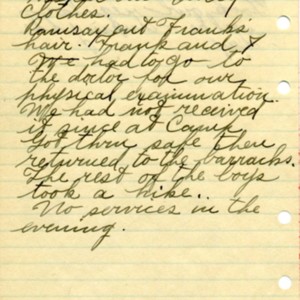 clothes.
Ramsay cut Frank's
hair. Frank and I
We had to go to
the doctor for our
physical examination.
We had not received
it since at Camp.
Got thru safe then
returned to the barracks.
The rest of the boys
took a hike.
No services in the
evening.